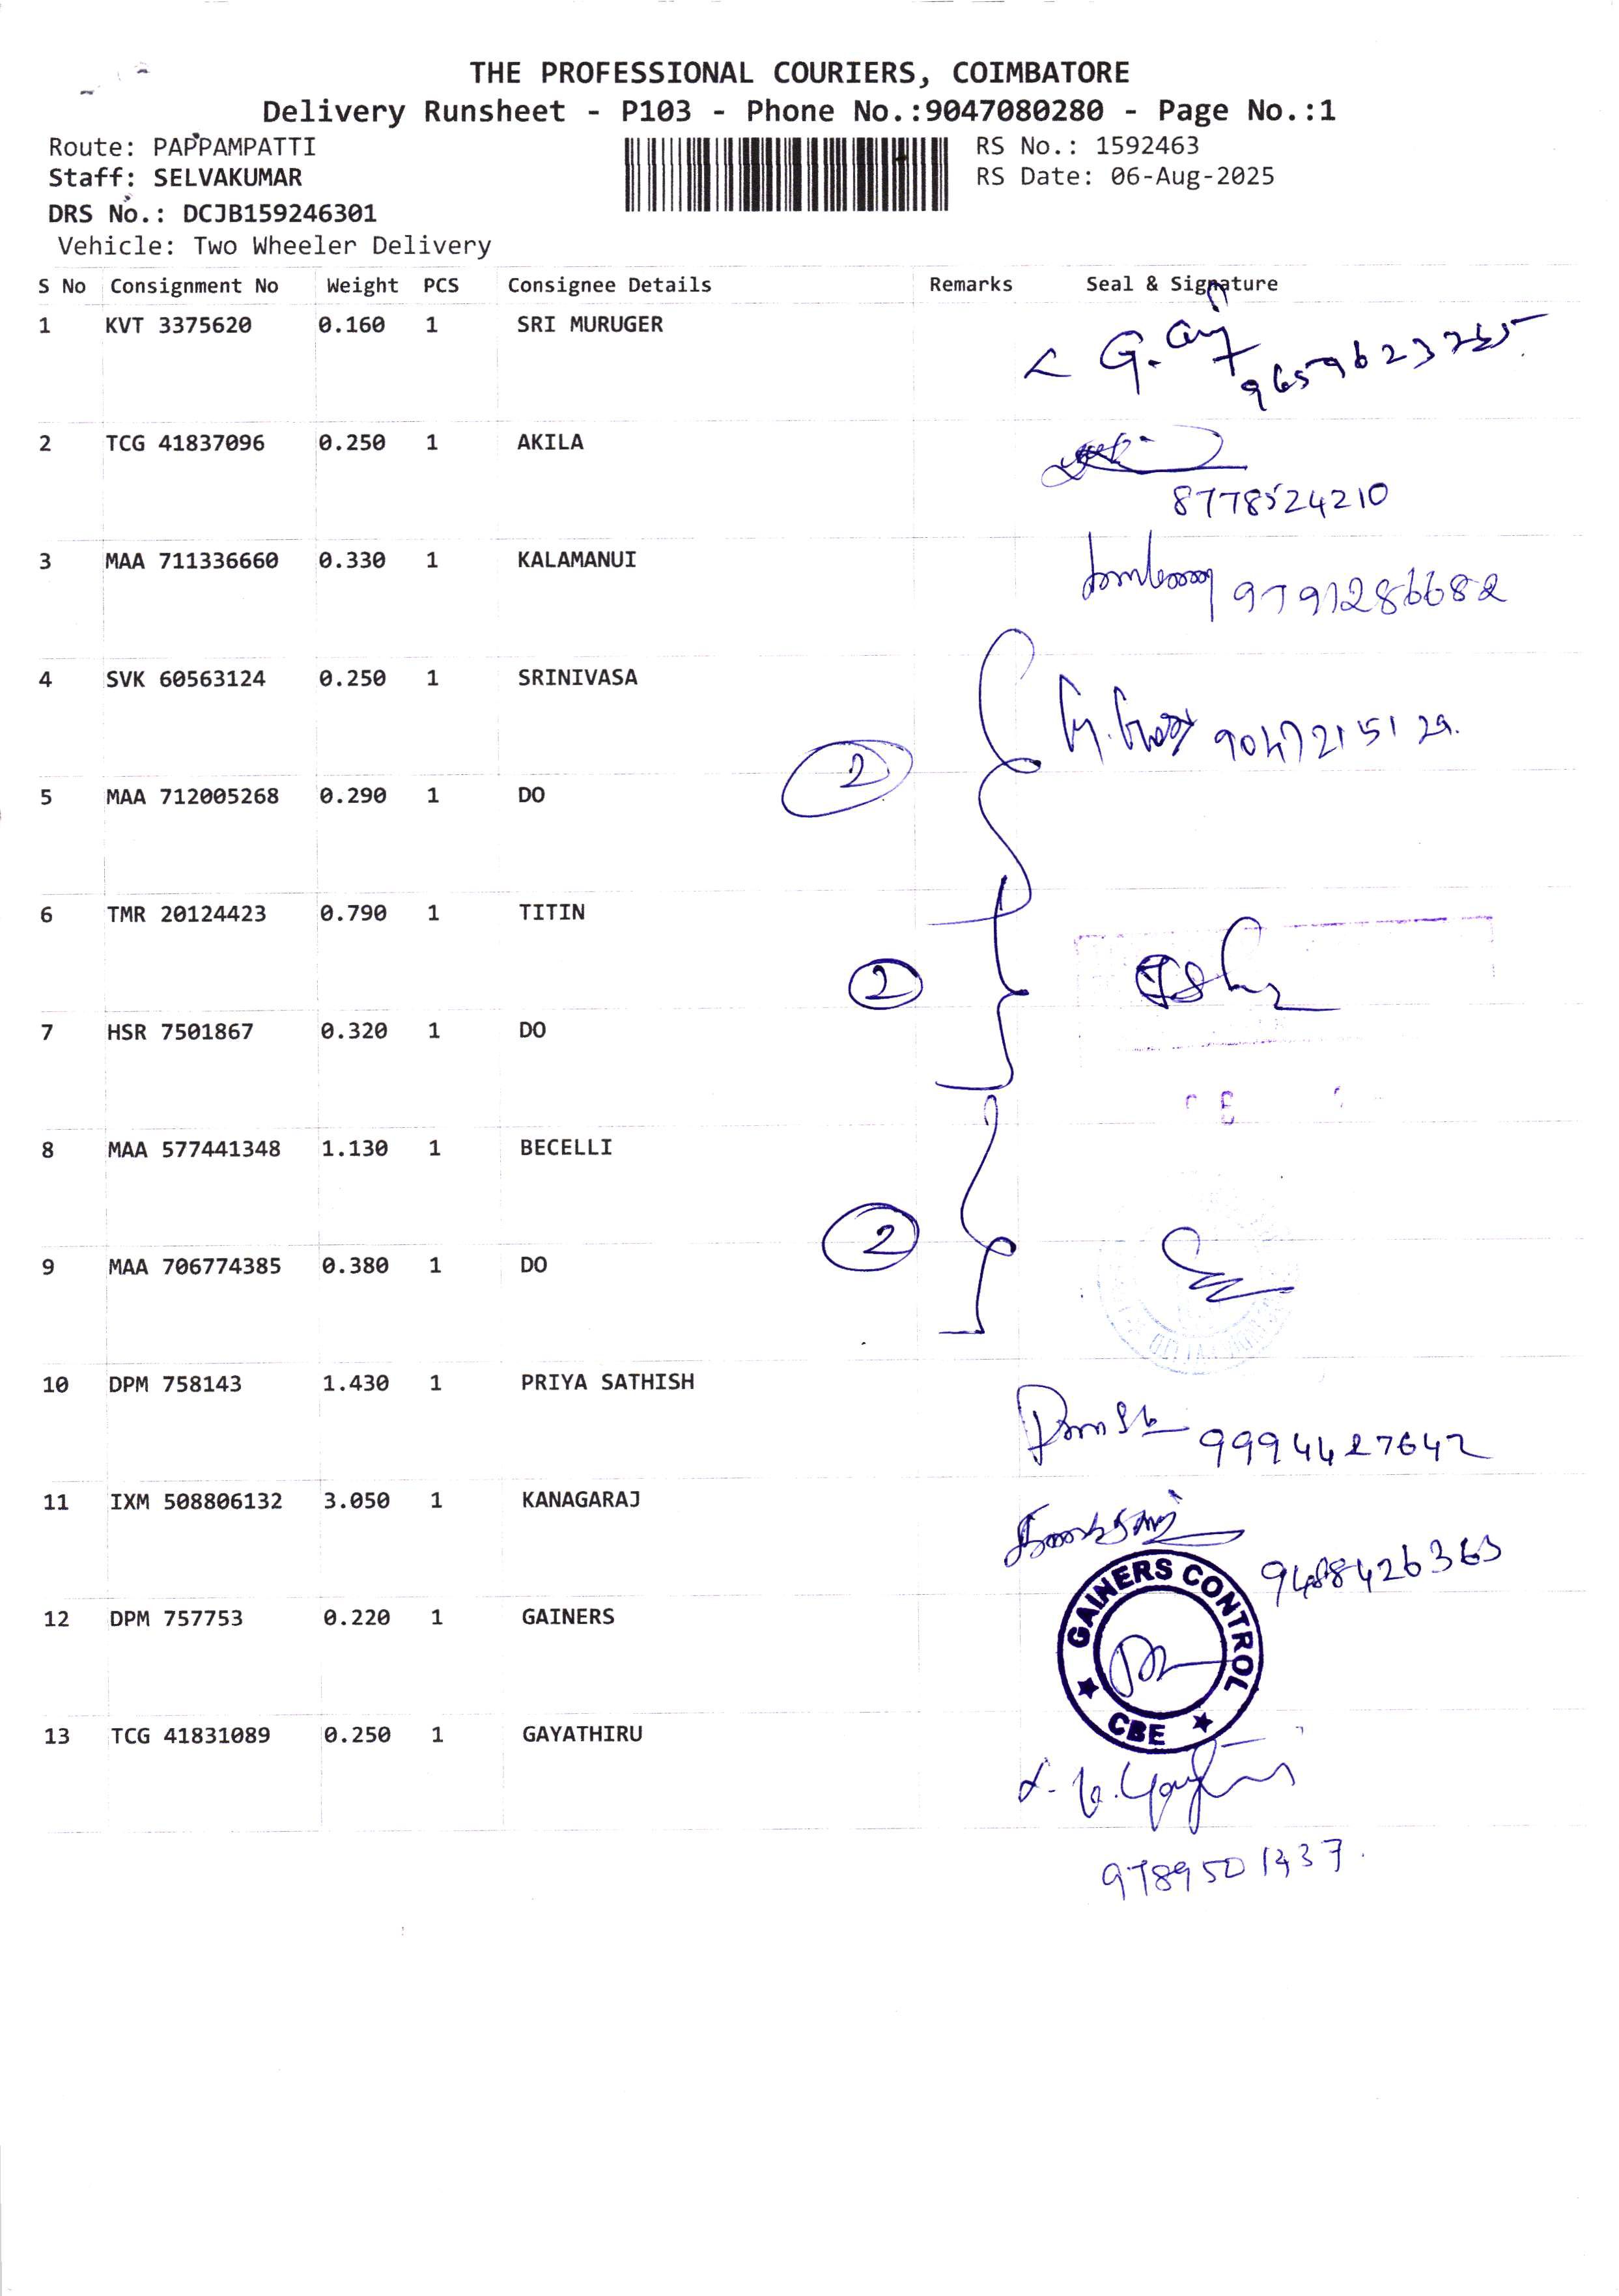 THE PROFESSIONAL COURIERS, COIMBATORE
Delivery Runsheet - P103 - Phone No.:9047080280 - Page No.:1
Route: PAPPAMPATTI
Staff: SELVAKUMAR
DRS No.: DCJB159246301
Vehicle: Two Wheeler Delivery
RS No.: 1592463
RS Date: 06-Aug-2025
S No Consignment No Weight PCS Consignee Details Remarks Seal & Signature
1 KVT 3375620 0.160 1 SRI MURUGER
2 TCG 41837096 0.250 1 AKILA
8778524210
3 MAA 711336660 0.330 1 KALAMANUI
9791286682
4 SVK 60563124 0.250 1 SRINIVASA
9047215129.
2
5 MAA 712005268 0.290 1 DO
6 TMR 20124423 0.790 1 TITIN
2
7 HSR 7501867 0.320 1 DO
8 MAA 577441348 1.130 1 BECELLI
2
9 MAA 706774385 0.380 1 DO
10 DPM 758143 1.430 1 PRIYA SATHISH
9994427642
11 IXM 508806132 3.050 1 KANAGARAJ
12 DPM 757753 0.220 1 GAINERS
GAINERS CONTROL
CBE
13 TCG 41831089 0.250 1 GAYATHIRU